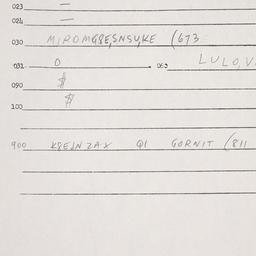 023 —
024 —
030 MIROMG8E,SNSYKE (673
031 0 063 LULO,V
090 $
100 $
900 K8EJNZAX QI GORNIT (811